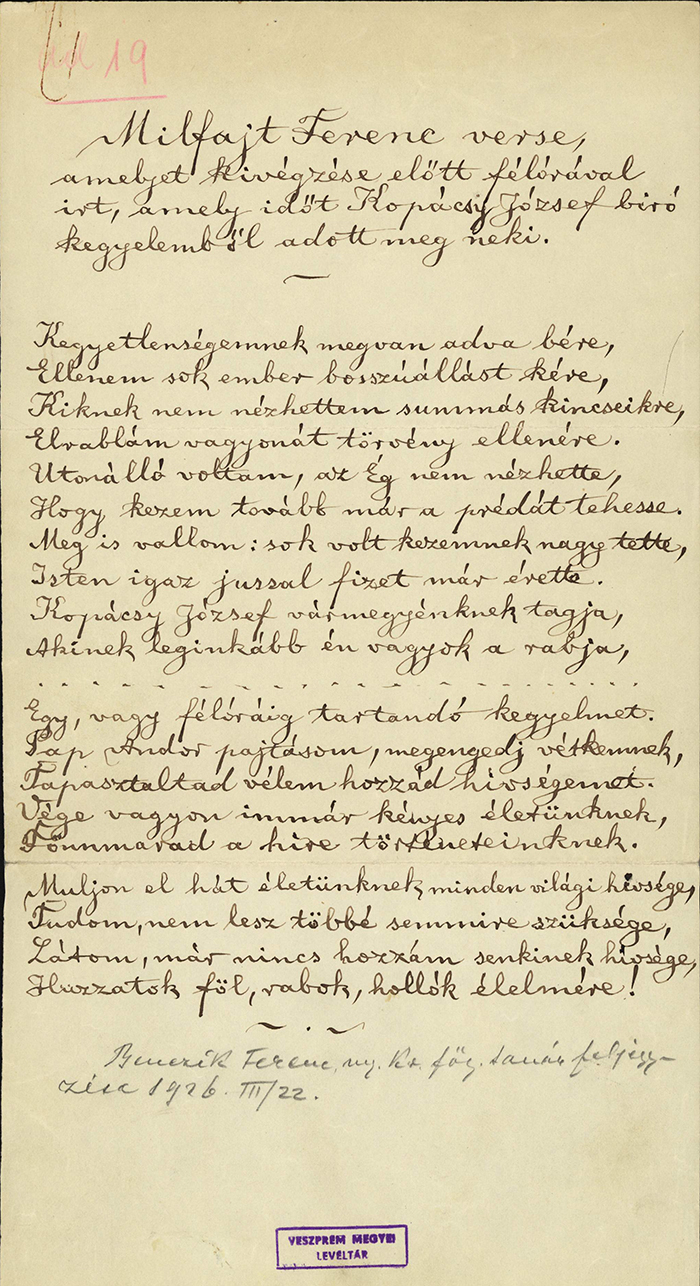 ad 19
Milfajt Ferenc verse,
amelyet kivégzése előtt félórával
irt, amely időt Kopácsy József biró
kegyelemből adott meg neki.
Kegyetlenségemnek megvan adva bére,
Ellenem sok ember bosszúállást kére,
Kiknek nem nézhettem summás kincseikre,
Elrablám vagyonát törvény ellenére.
Utonálló voltam, az Ég nem nézhette,
Hogy kezem tovább már a prédát tehesse.
Meg is vallom: sok volt kezemnek nagy tette,
Isten igaz jussal fizet már érette.
Kopácsy József vármegyénknek tagja,
Akinek leginkább én vagyok a rabja,
Egy, vagy félóráig tartandó kegyelmet.
Pap Andor pajtásom, megengedj vétkemnek,
Tapasztaltad vélem hozzád hivségemet.
Vége vagyon immár kényes életünknek,
Fönnmarad a hire történeteinknek.
Muljon el hát életünknek minden világi hivsége,
Tudom, nem lesz többé semmire szüksége,
Látom, már nincs hozzám senkinek hivsége,
Huzzatok föl, rabok, hollók élelmére!
Benczik Ferenc, ny. kr. főg. tanár feljegy-
zése 1926. III/22.
VESZPRÉM MEGYEI
LEVÉLTÁR